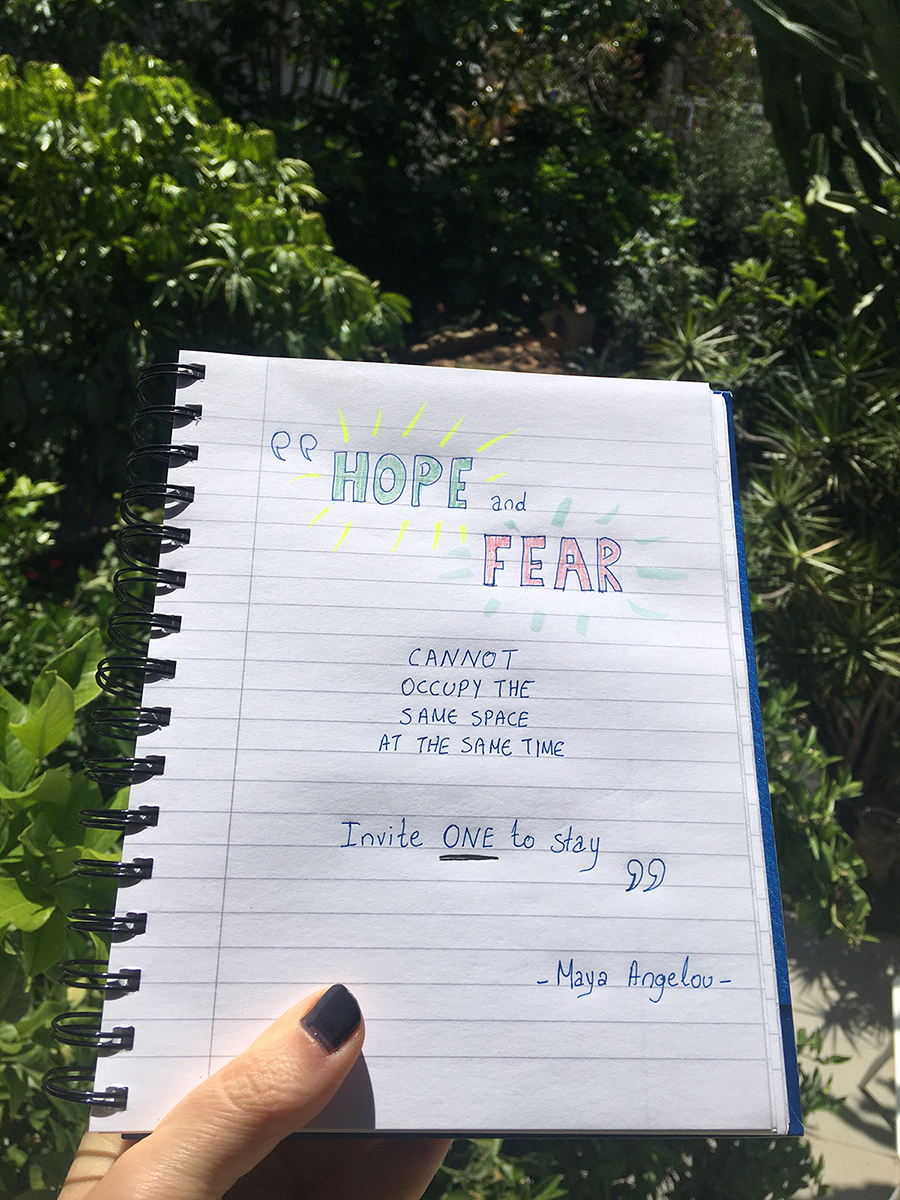 “HOPE and
FEAR
CANNOT
OCCUPY THE
SAME SPACE
AT THE SAME TIME
Invite ONE to stay
”
- Maya Angelou -